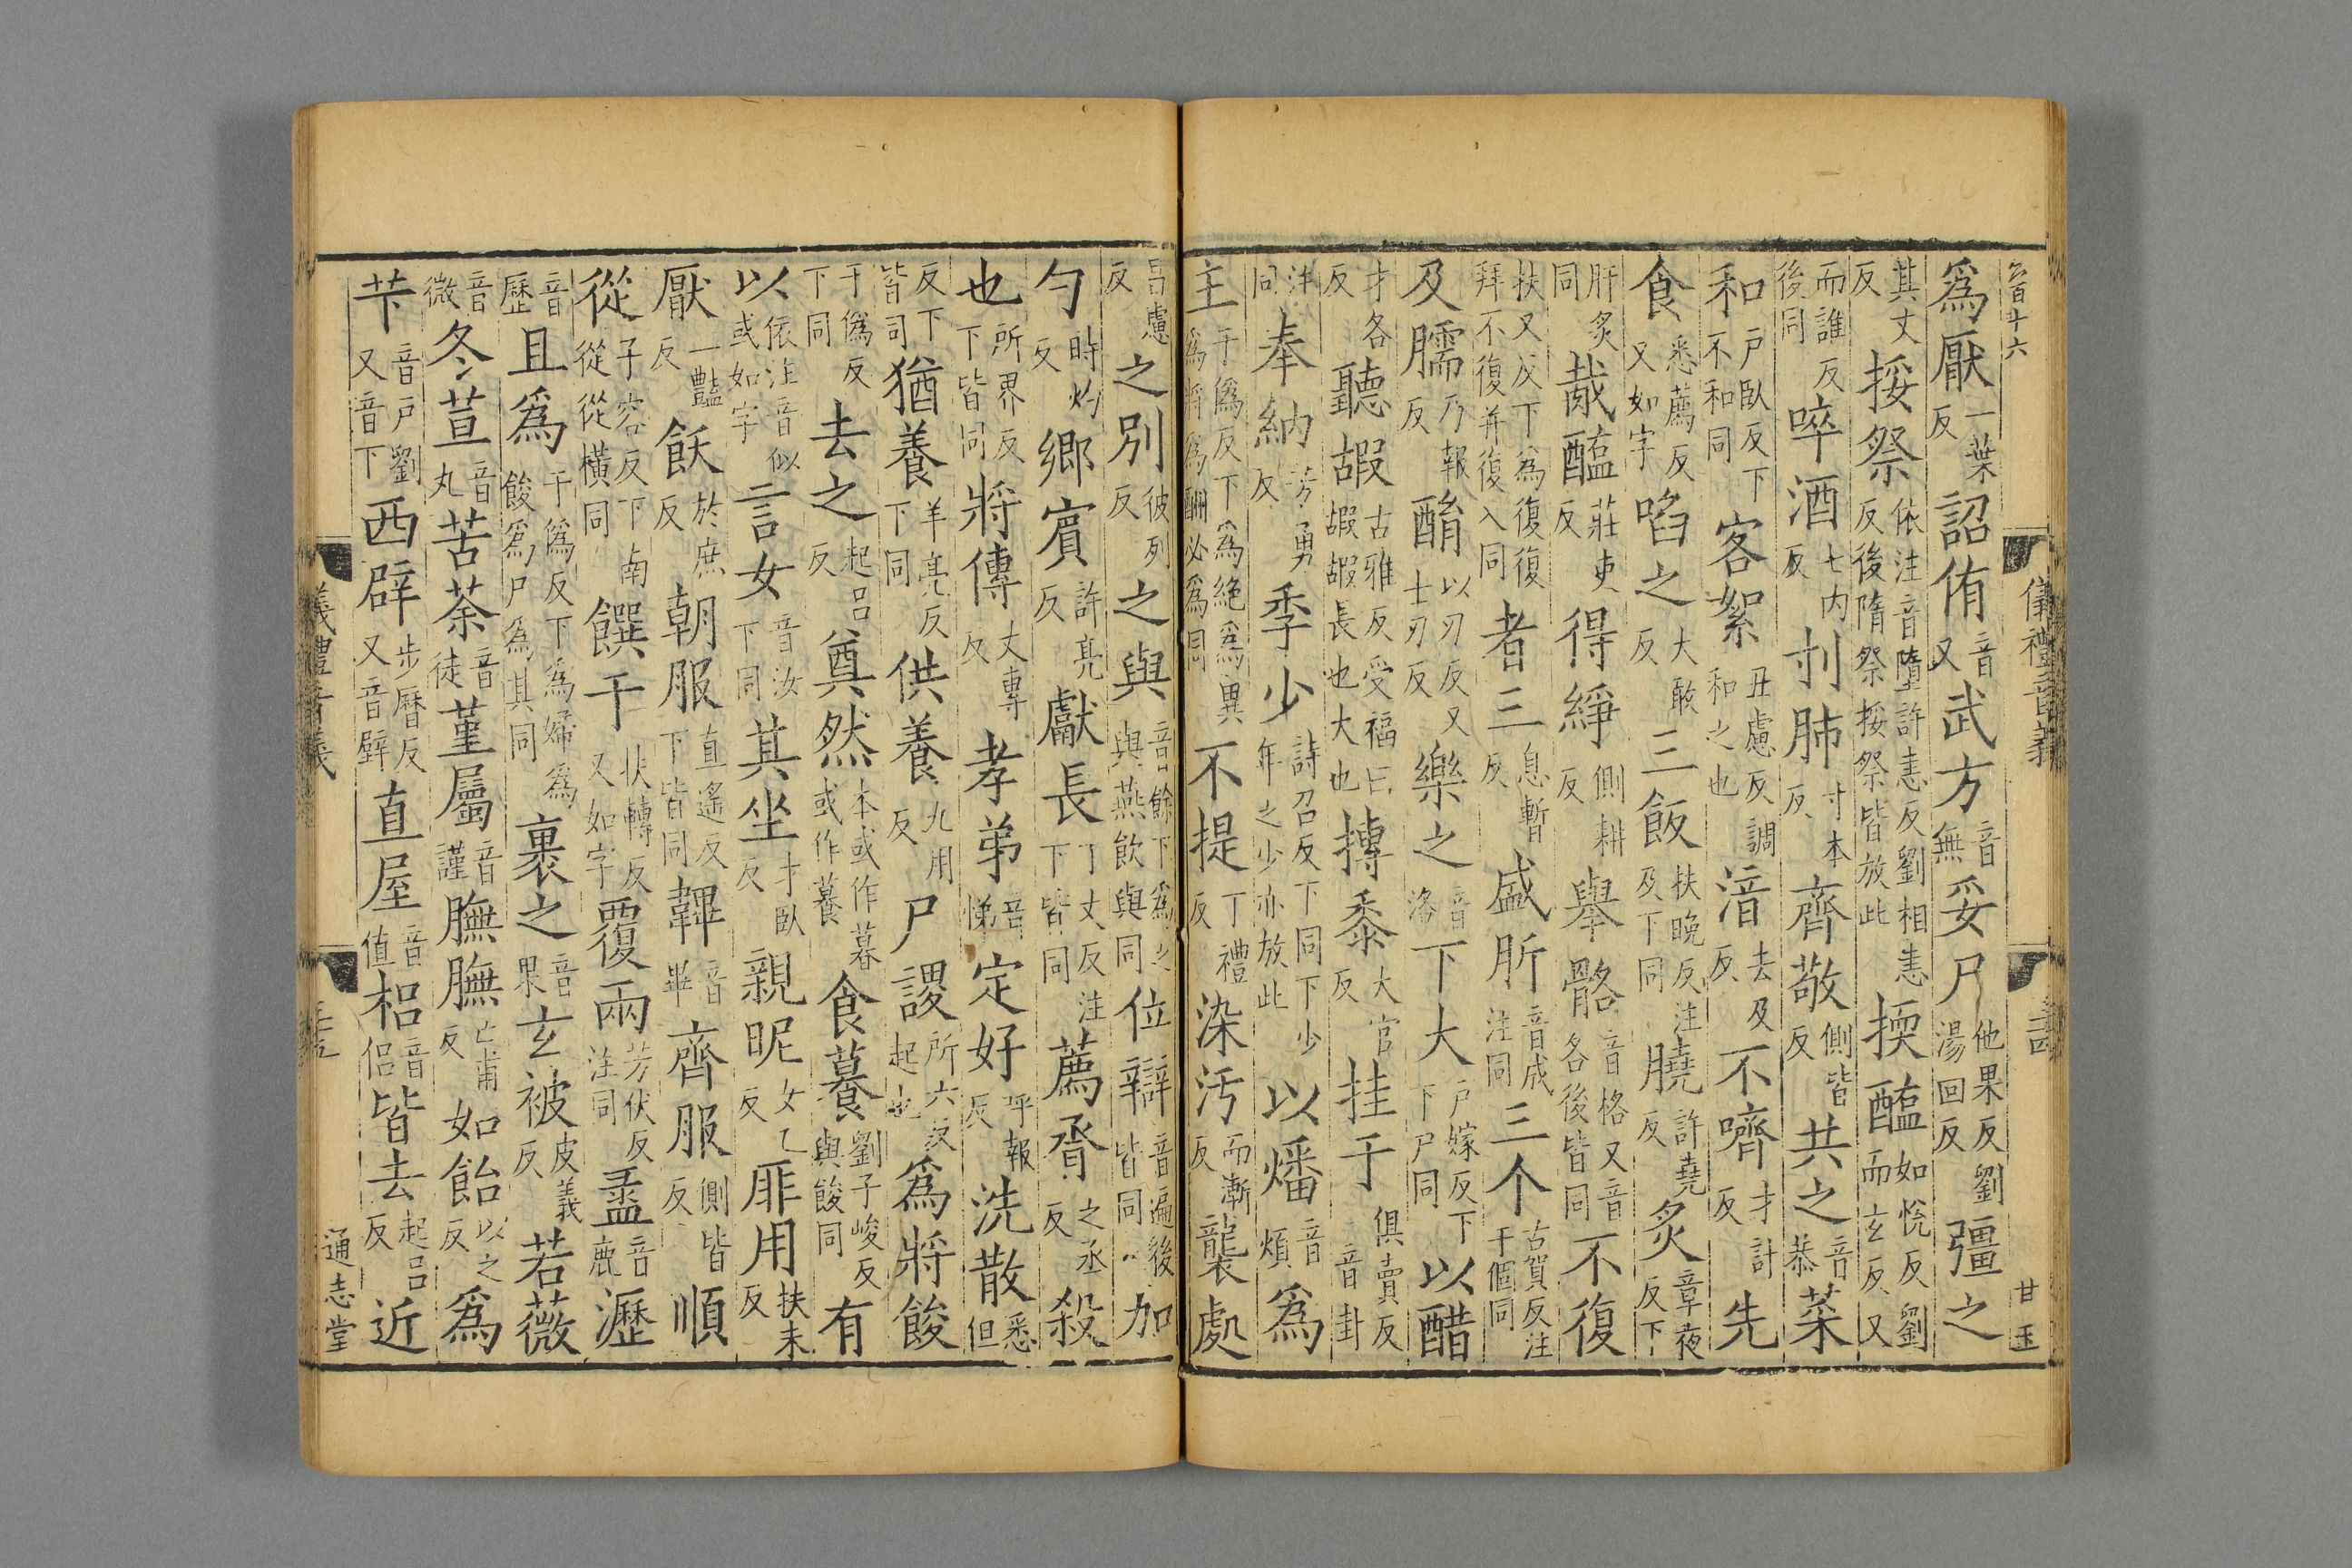 爲厭一葉反詔侑音又武方音無妥尸他果反劉湯回反彊之
其丈反挼祭依注音墮許恚反劉相恚反後隋祭挼祭皆放此擩醢如悅反劉而玄反又
而誰反後同啐酒七内反刌肺寸本反齊敬側皆反共之音恭菜
和戶臥反下不和同客絮丑慮反調和之也湆去及反不嚌才計反先
食悉薦反又如字啗之大敢反三飯扶晚反注及下同膮許堯反炙章夜反下
肝炙同胾醢莊吏反得綪側耕反舉骼音格又音各後皆同不復
扶又反下爲復復拜不復并復入同者三息暫反盛肵音成注同三个古賀反注干個同
及臑乃報反酳以刃反又士刃反樂之音洛下大戶嫁反下下尸同以醋
才各反聽嘏古雅反受福曰嘏嘏長也大也摶黍大官反挂于俱賣反音卦
注同奉納芳勇反季少詩召反下同下少年之少亦放此以燔音煩爲
主于爲反下爲絶爲異爲將爲酬必爲同不提丁禮反染汚而漸反襲處
昌慮反之別彼列反之與音餘下爲之與燕飮與同位辯音遍後皆同加
勺時灼反鄉賓許亮反獻長丁丈反注下皆同薦脀之丞反殺
也所界反下皆同將傳丈專反孝弟音悌定好呼報反洗散悉但
反下皆同猶養羊亮反下同供養九用反尸謖所六反起也爲將餕
于僞反下同去之起呂反奠然本或作暮或作䭕食䭕劉子峻反與餕同有
以依注音似或如字言女音汝下同其坐才臥反親昵女乙反厞用扶未反
厭一豔反飫於庶反朝服直遙反下皆同韠音畢齊服側皆反順
從子容反下南從從橫同饌于狀轉反又如字覆兩芳伏反注同盝音鹿瀝
音歷且爲于僞反下爲婦爲餕爲尸爲其同裹之音果玄被皮義反若薇
音微冬荁音丸苦荼音徒堇屬音謹膴膴亡甫反如飴以之反爲
芐音戶劉又音下西辟步曆反又音壁直屋音值梠音侶皆去起呂反近
儀禮音義
甘玉
通志堂